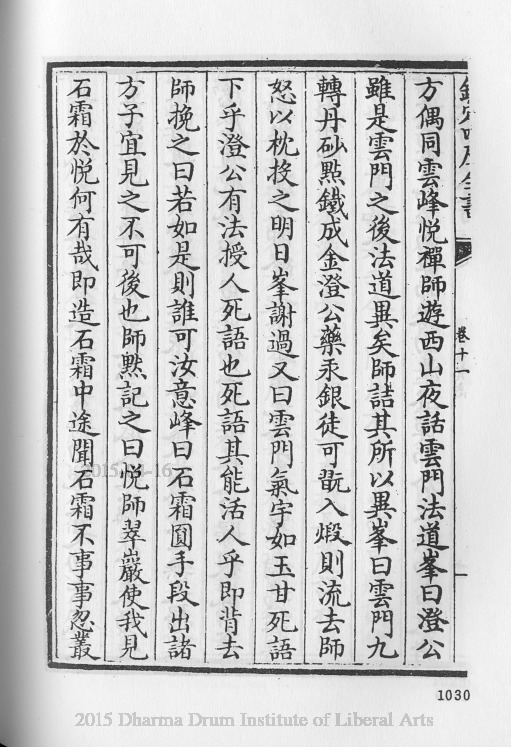 欽定四庫全書
卷十一
方偶同雲峰悅禪師遊西山夜話雲門法道峯曰澄公
雖是雲門之後法道異矣師詰其所以異峯曰雲門九
轉丹砂點鐵成金澄公藥汞銀徒可翫入煅則流去師
怒以枕投之明日峯謝過又曰雲門氣宇如王甘死語
下乎澄公有法授人死語也死語其能活人乎即背去
師挽之曰若如是則誰可汝意峰曰石霜圓手段出諸
方子宜見之不可後也師默記之曰悅師翠巖使我見
石霜於悅何有哉即造石霜中途聞石霜不事事忽叢
1030
2015 Dharma Drum Institute of Liberal Arts